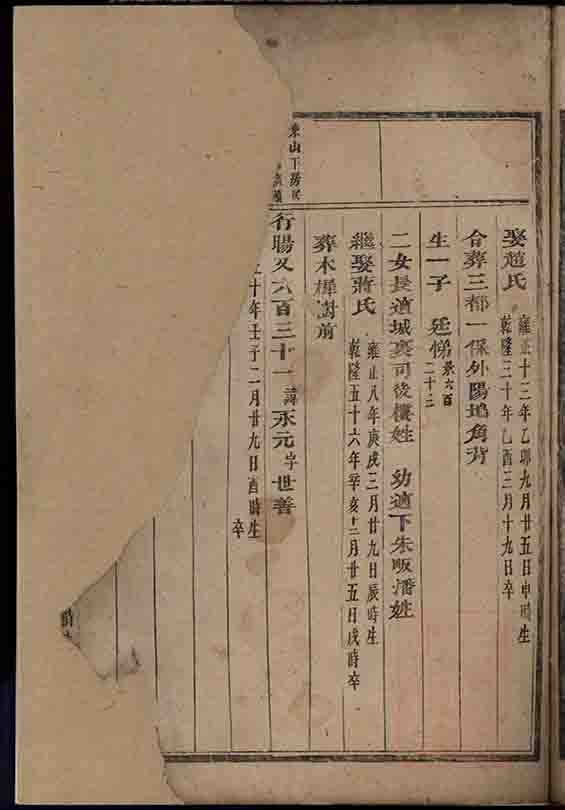 娶趙氏
雍正十三年乙卯九月廿五日申時生
乾隆三十年乙酉三月十九日卒
合葬三都一保外陽塢角背
生一子 廷悌 承六百二十二
二女長適城裏司後樓姓 幼適下朱畈潘姓
繼娶蔣氏
雍正八年庚戌三月廿九日辰時生
乾隆五十六年辛亥十二月廿五日戌時卒
葬木樨樹前
東山下房
行賜又六百三十一 諱永元字世善
十年壬子二月廿九日酉時生
卒